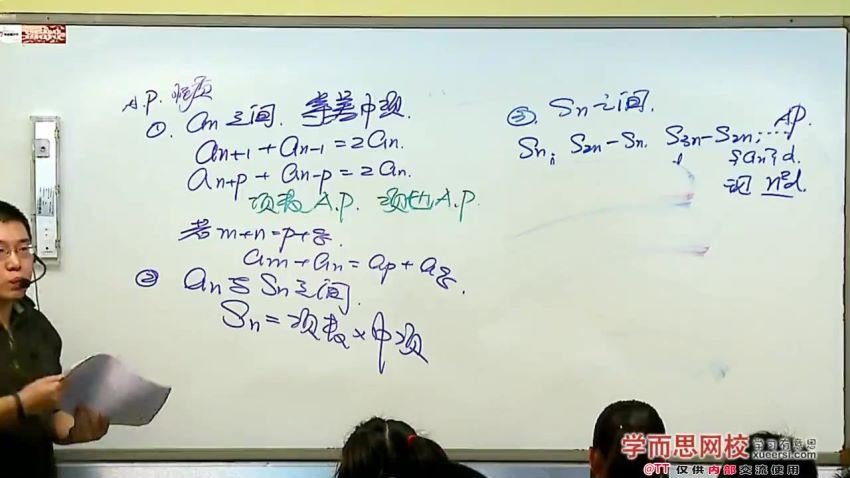 A.P. 性质
①. an 之间. 等差中项.
an+1 + an-1 = 2an.
an+p + an-p = 2an.
项数A.P. 项也A.P.
若 m+n=p+q.
am+an = ap+aq.
② an与Sn之间.
Sn = 项数×中项
③. Sn之间.
Sn, S2n-Sn, S3n-S2n, … A.P.
{an} d.
现 n²d.
学而思网校
学习有意思
xueersi.com
@TT 仅供内部交流使用